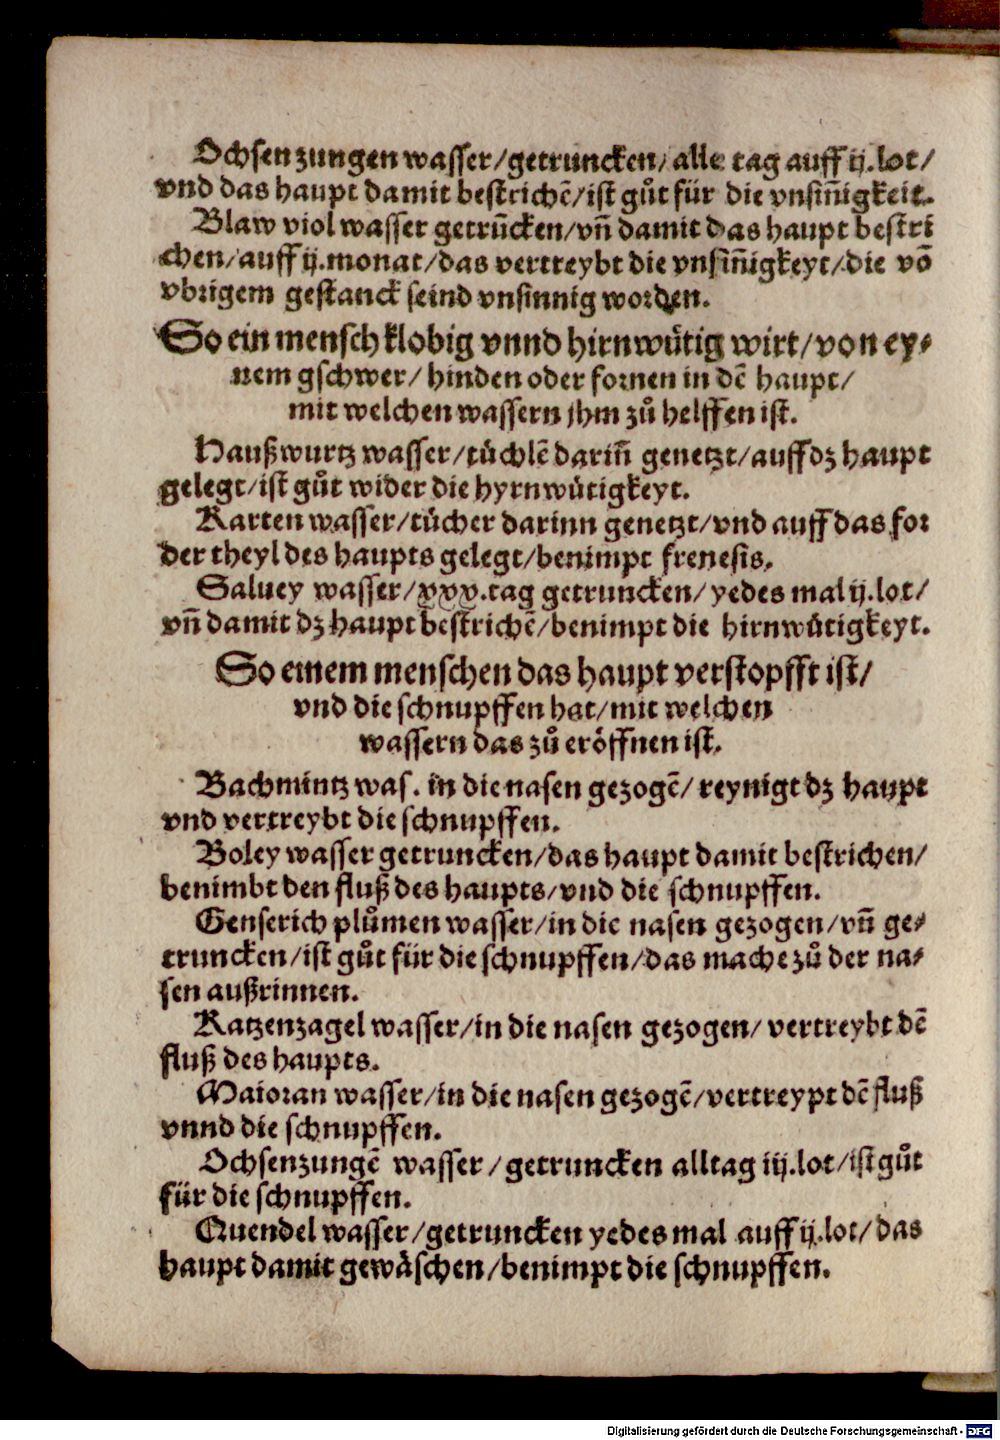 Ochsenzungen wasser/getruncken/alle tag auff ij.lot/
vnd das haupt damit bestrichē/ist gůt für die vnsiñigkeit.
Blaw viol wasser getrūcken/vñ damit das haupt bestri
chen/auff ij.monat/das vertreybt die vnsiñigkeyt/die vō
vbrigem gestanck seind vnsinnig worden.
So ein mensch klobig vnnd hirnwütig wirt/von ey⸗
nem gschwer/hinden oder fornen in dē haupt/
mit welchen wassern jhm zů helffen ist.
Haußwurtz wasser/tüchlē dariñ genetzt/auff dz haupt
gelegt/ist gůt wider die hyrnwütigkeyt.
Karten wasser/tücher darinn genetzt/vnd auff das for
der theyl des haupts gelegt/benimpt frenesis.
Saluey wasser/xxx.tag getruncken/yedes mal ij.lot/
vñ damit dz haupt bestrichē/benimpt die hirnwütigkeyt.
So einem menschen das haupt verstopfft ist/
vnd die schnupffen hat/mit welchen
wassern das zů eröffnen ist.
Bachmintz was. in die nasen gezogē/reynigt dz haupt
vnd vertreybt die schnupffen.
Boley wasser getruncken/das haupt damit bestrichen/
benimbt den fluß des haupts/vnd die schnupffen.
Genserich plůmen wasser/in die nasen gezogen/vñ ge⸗
truncken/ist gůt für die schnupffen/das mache zů der na⸗
sen außrinnen.
Katzenzagel wasser/in die nasen gezogen/vertreybt dē
fluß des haupts.
Maioran wasser/in die nasen gezogē/vertreypt dē fluß
vnnd die schnupffen.
Ochsenzungē wasser/getruncken alltag iij.lot/ist gůt
für die schnupffen.
Quendel wasser/getruncken yedes mal auff ij.lot/das
haupt damit gewäschen/benimpt die schnupffen.
Digitalisierung gefördert durch die Deutsche Forschungsgemeinschaft - DFG